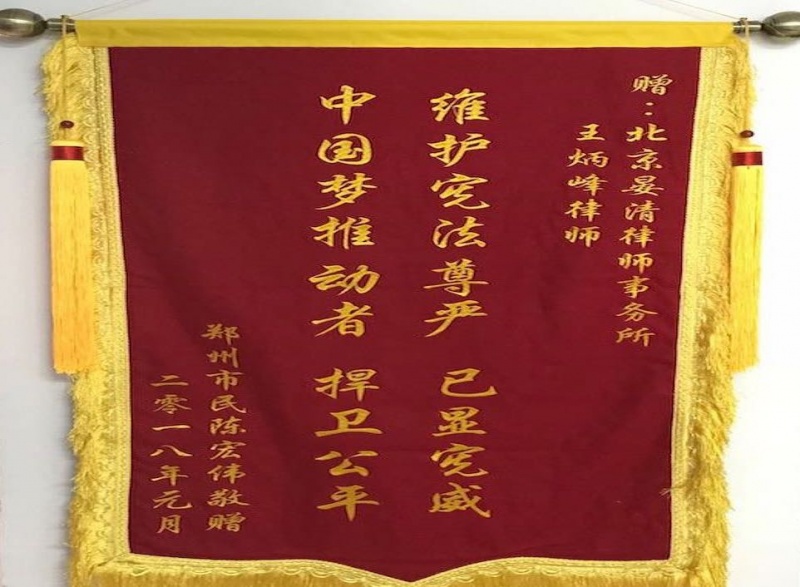 赠：北京晏清律师事务所
王炳峰律师
维护宪法尊严 已显宪威
中国梦推动者 捍卫公平
郑州市民陈宏伟敬赠
二零一八年元月